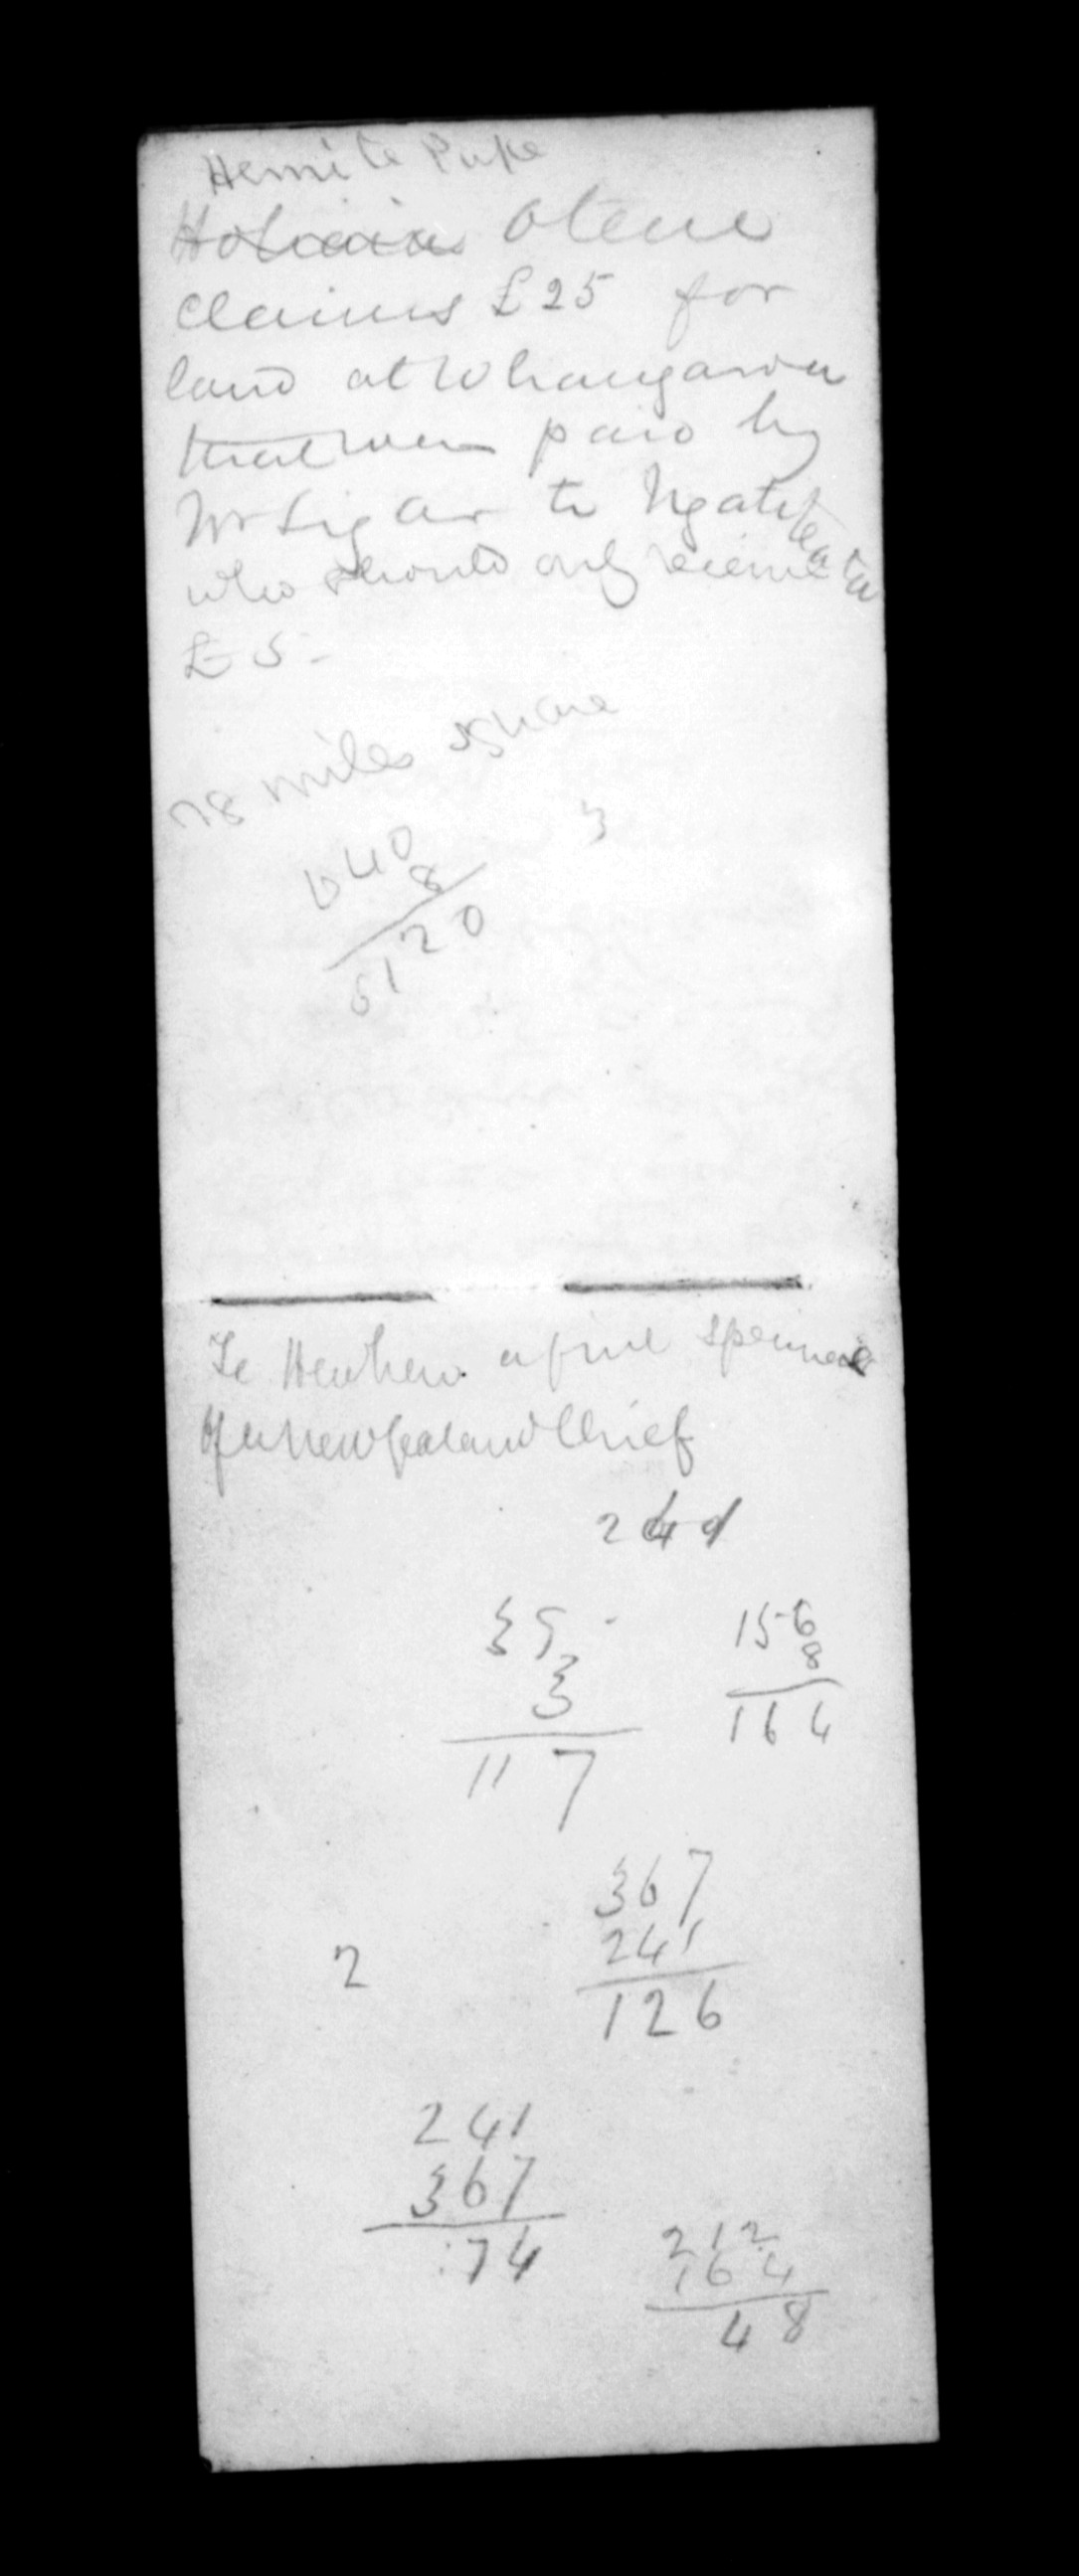 Hemi te Puke
Hohaia Otene
Claims £25 for
land at Whangaroa
that was paid by
Mr Ligar to Ngatiteata
who should only receive
£5-
78 miles square
3
640
8
5120
Te Heuheu a fine specimen
of a New Zealand Chief
241
39
3
117
156
8
164
367
241
126
2
241
367
74
212
164
48